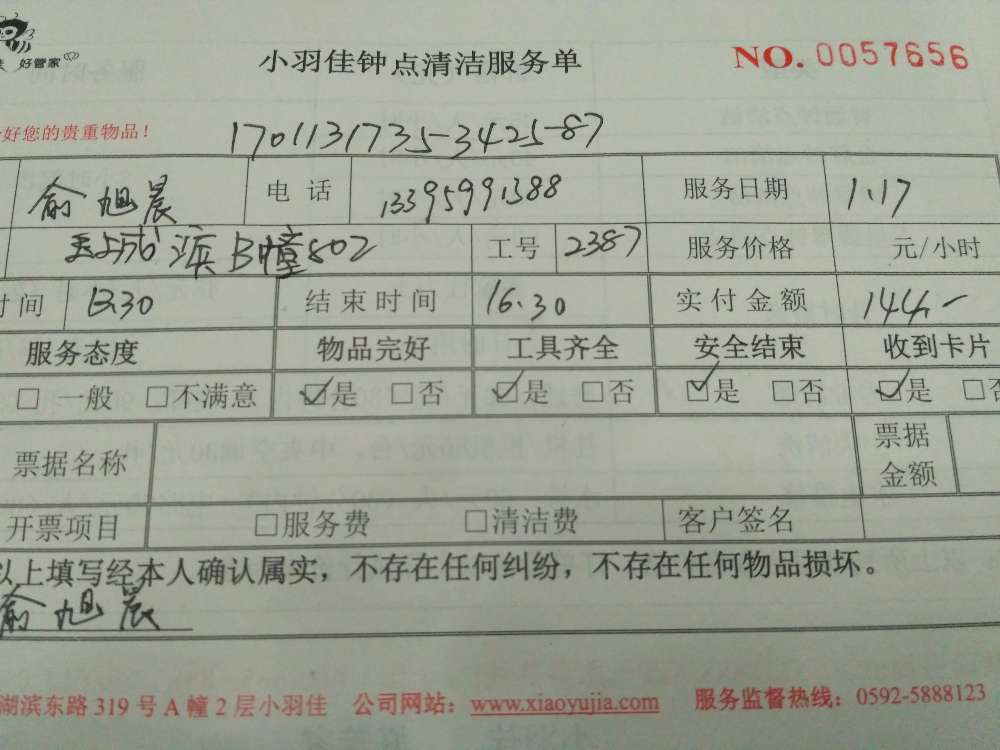 好管家
小羽佳钟点清洁服务单 NO.0057656
好您的贵重物品!
1701131735-3425-87
俞旭晨 电话 13395991388 服务日期 1.17
滨B幢802 工号 2387 服务价格 元/小时
时间 13.30 结束时间 16.30 实付金额 144.-
服务态度 物品完好 工具齐全 安全结束 收到卡片
□一般 □不满意 ☑是 □否 ☑是 □否 ☑是 □否 ☑是 □否
票据名称 票据金额
开票项目 □服务费 □清洁费 客户签名
以上填写经本人确认属实,不存在任何纠纷,不存在任何物品损坏。
俞旭晨
湖滨东路319号A幢2层小羽佳 公司网站:www.xiaoyujia.com 服务监督热线:0592-5888123